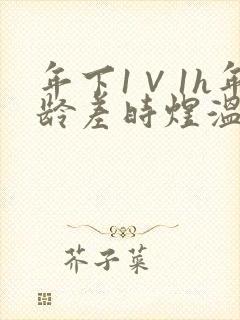 年下1V1h年
龄差时煜温
芥子菜